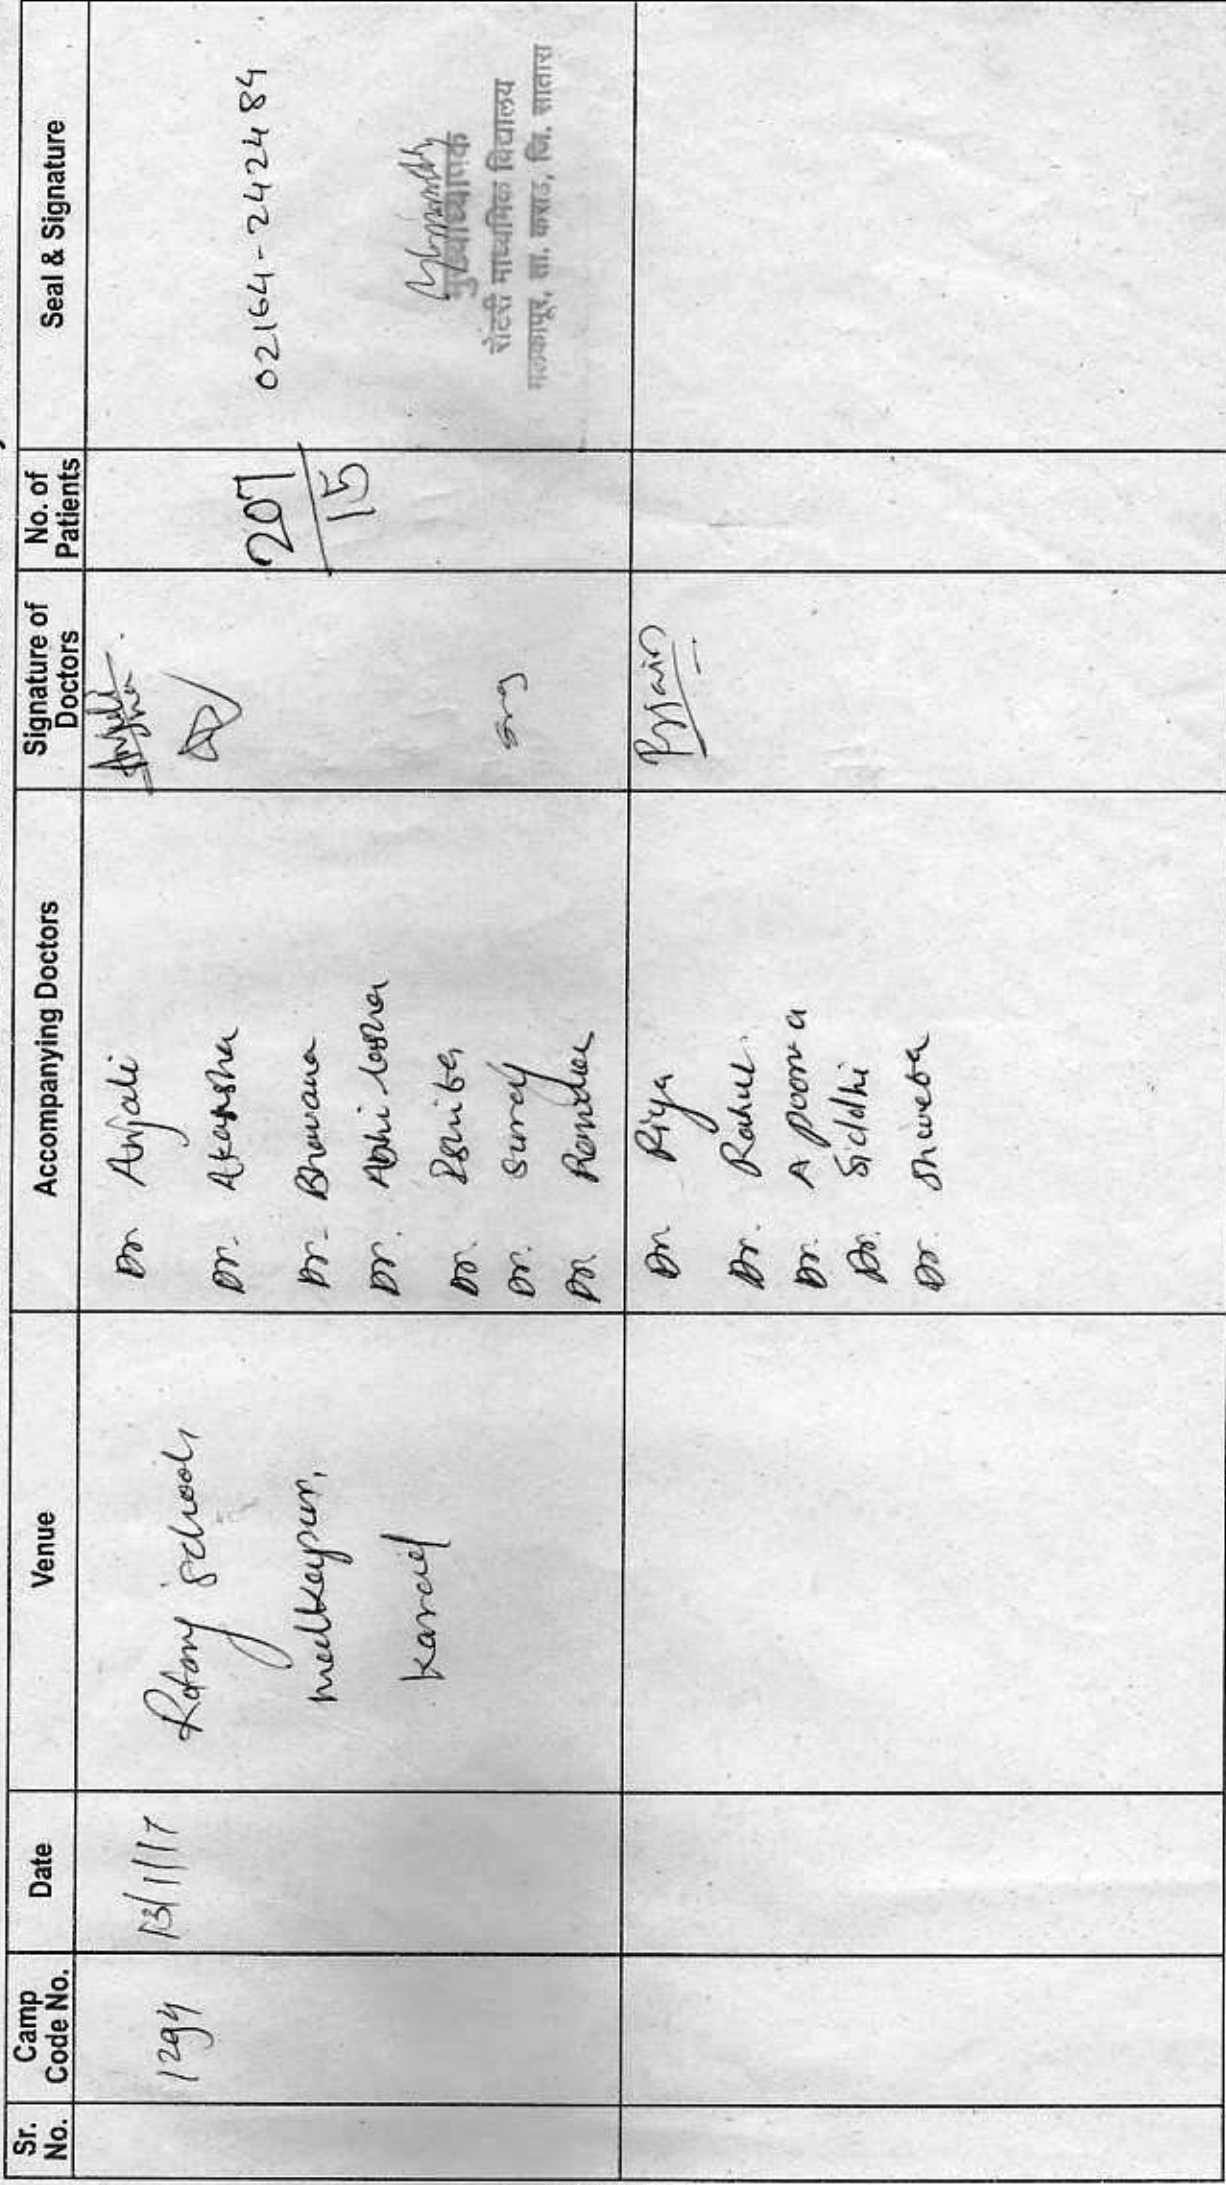 Sr. No.
Camp Code No.
Date
Venue
Accompanying Doctors
Signature of Doctors
No. of Patients
Seal & Signature
1294
13/1/17
Rotary school,
malkapur,
Karad
Dr Anjali
Dr. Akansha
Dr. Bhavana
Dr. Abhilasha
Dr. Ishita
Dr. Suraj
Dr
207
15
02164-242484
मुख्याध्यापक
रोटरी माध्यमिक विद्यालय
मलकापूर, ता. कराड, जि. सातारा
Dr Riya
Dr. Rahul.
Dr. Apoorva
Dr. Siddhi
Dr. Shweta